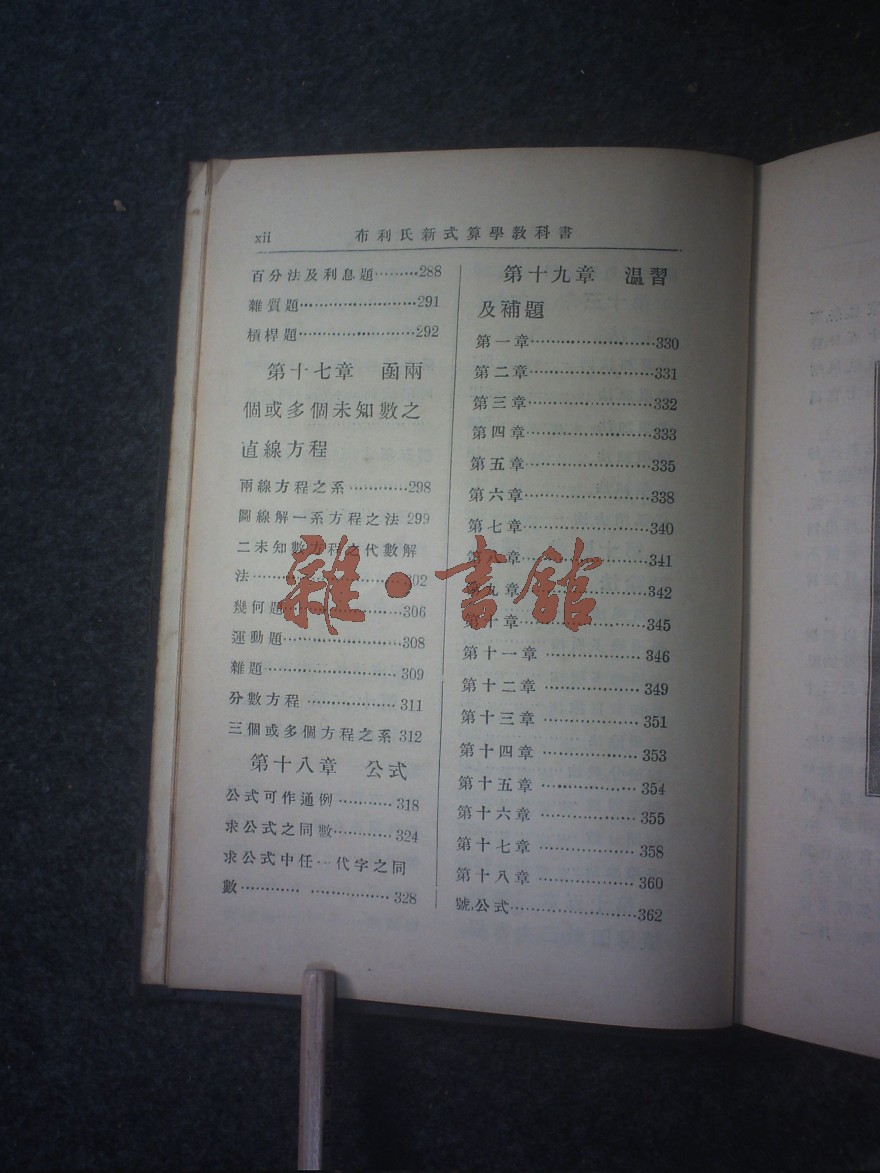 xii
布利氏新式算學教科書
百分法及利息題………288
雜質題……………………291
槓桿題……………………292
第十七章 函兩
個或多個未知數之
直線方程
兩線方程之系…………298
圖線解一系方程之法 299
二未知數方程之代數解
法…………………………302
幾何題……………………306
運動題……………………308
雜題………………………309
分數方程 ………………311
三個或多個方程之系 312
第十八章 公式
公式可作通例 …………318
求公式之同數…………324
求公式中任一代字之同
數………… ……………328
第十九章 溫習
及補題
第一章……………………330
第二章……………………331
第三章……………………332
第四章……………………333
第五章……………………335
第六章……………………338
第七章……………………340
第八章……………………341
第九章……………………342
第十章……………………345
第十一章 ………………346
第十二章 ………………349
第十三章 ………………351
第十四章 ………………353
第十五章 ………………354
第十六章 ………………355
第十七章 ………………358
第十八章 ………………360
號公式……………………362
雜·書館